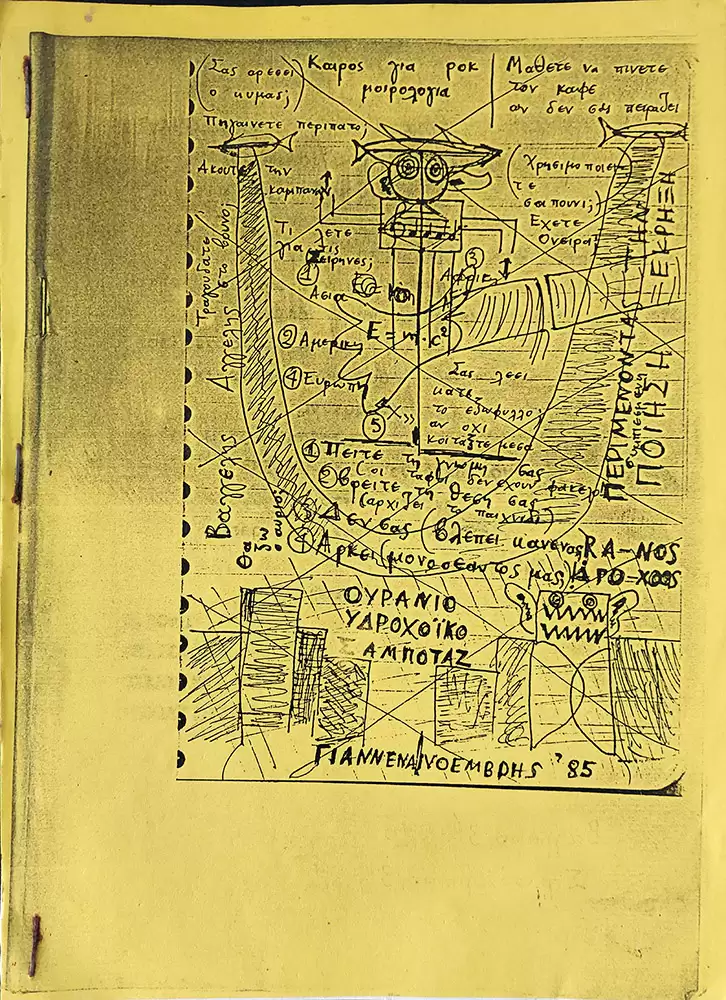 (Σας αρεσει
ο κυμας;)
Καιρος για ροκ
μοιρολογια
Μαθετε να πινετε
τον καφε
αν δεν σας πειραζει
Πηγαινετε περιπατο;
Ακουτε την
καμπανα;
(Χρησιμοποιει
τε
σαπουνι;)
Εχετε
Ονειρα;
Τραγουδατε
στο βουνο;
Τι λετε
για τις
Σειρηνες;
① Ασια
③ Αφρικη
② Αμερικη
E=m.c²
④ Ευρωπη
⑤
Σας λεει
κατι
το εξωφυλλο;
αν οχι
κοιταξτε μεσα
ΠΕΡΙΜΕΝΟΝΤΑΣ ΤΗΝ ΕΚΡΗΞΗ
ΠΟΙΗΣΗ
Βαγγελης Αγγελης
① Πειτε τη γνωμη σας
(οι ταφοι δεν εχουν φακελο)
② βρειτε τη θεση σας
(αρχιζει το παιχνιδι)
③ Δεν σας (βλεπει κανενας)
④ Αρκει (μονο ο εαυτος μας)
Θα
ζω
αυριο;
RA-NOS
ΔΡΟ-ΧΟΟΣ
ΟΥΡΑΝΙΟ
ΥΔΡΟΧΟΪΚΟ
ΣΑΜΠΟΤΑΖ
ΓΙΑΝΝΕΝΑ/ΝΟΕΜΒΡΗΣ '85